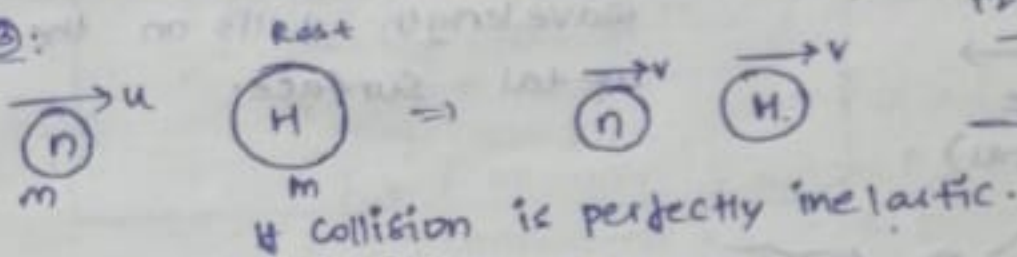 ②: Rest
→ u n H ⇒ n → v H. → v
m m
↓ collision is perfectly inelastic.